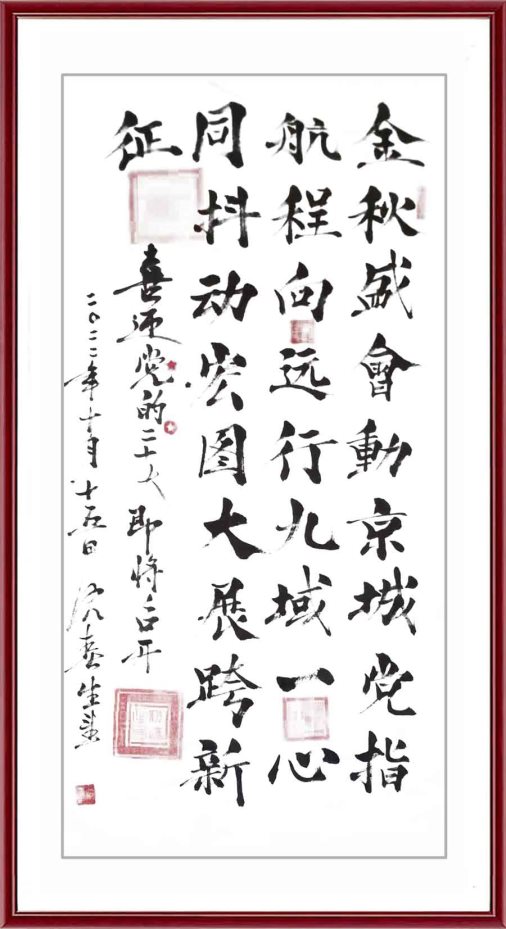 金秋盛會動京城党指
航程向远行九域一心
同抖动宏图大展跨新
征
喜迎党的二十大 即将召开
二〇二二年十月十五日 春生